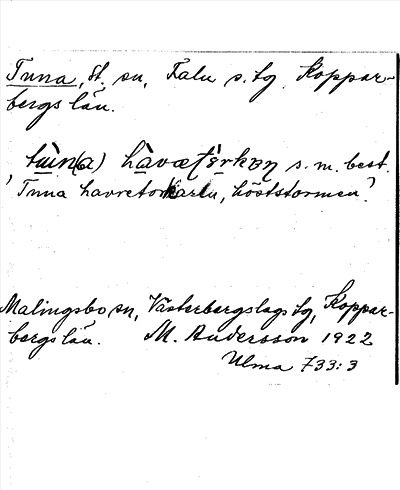 Tuna, St. sn, Falu s. tg. Koppar-
bergs län.
tùin(a) hàvæt̀erkən s. m. best.
'Tuna havretorkarn, höststormen'.
Malingsbo sn, Västerbergslags tg, Koppar-
bergs län. M. Andersson 1922
Ulma 733:3